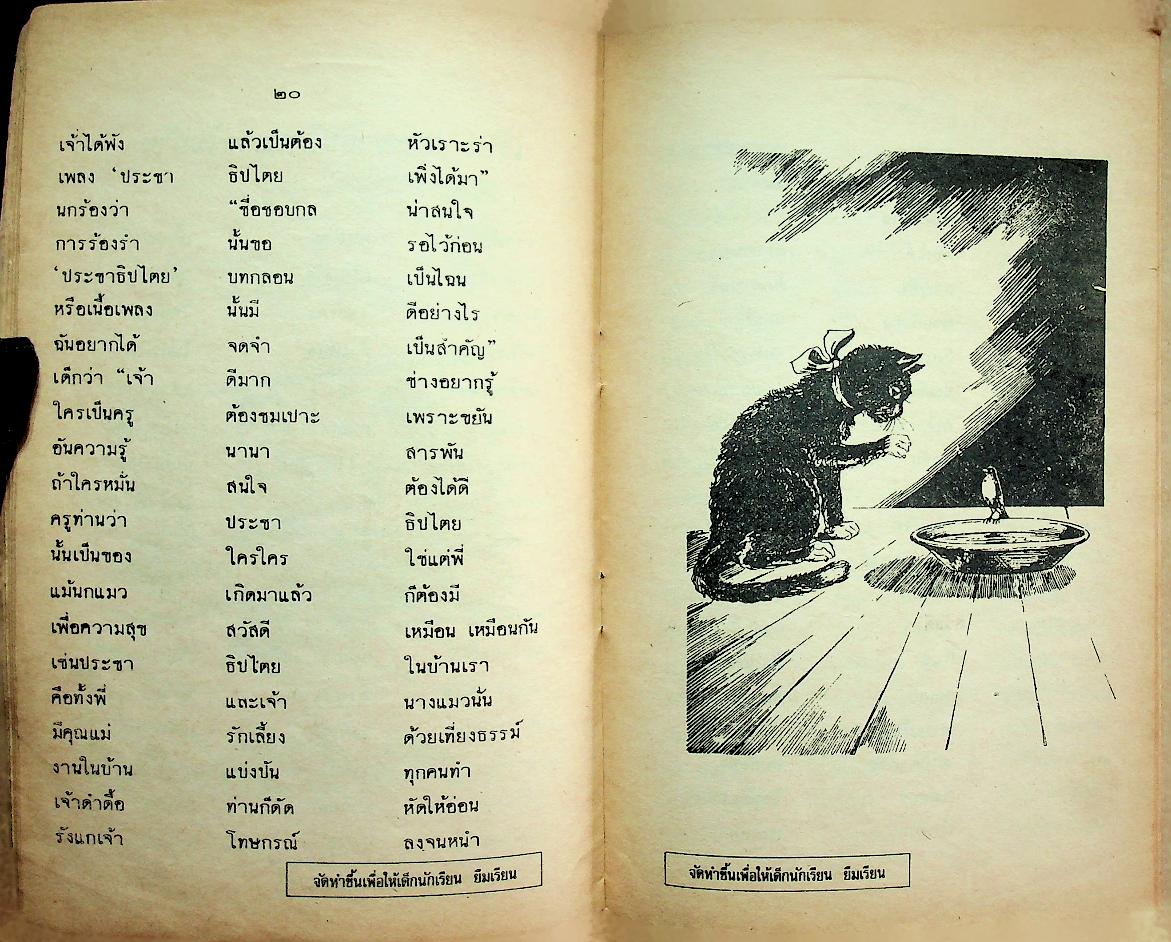 ๒๐
เจ้าได้พัง แล้วเป็นต้อง หัวเราะร่า
เพลง ‘ประชา ธิปไตย เพิ่งได้มา”
นกร้องว่า “ชื่อชอบกล น่าสนใจ
การร้องรำ นั้นขอ รอไว้ก่อน
‘ประชาธิปไตย’ บทกลอน เป็นไฉน
หรือเนื้อเพลง นั้นมี ดีอย่างไร
ฉันอยากได้ จดจำ เป็นสำคัญ”
เด็กว่า “เจ้า ดีมาก ช่างอยากรู้
ใครเป็นครู ต้องชมเปาะ เพราะขยัน
อันความรู้ นานา สารพัน
ถ้าใครหมั่น สนใจ ต้องได้ดี
ครูท่านว่า ประชา ธิปไตย
นั้นเป็นของ ใครใคร ใช่แต่พี่
แม้นกแมว เกิดมาแล้ว ก็ต้องมี
เพื่อความสุข สวัสดี เหมือน เหมือนกัน
เช่นประชา ธิปไตย ในบ้านเรา
คือทั้งพี่ และเจ้า นางแมวนั่น
มีคุณแม่ รักเลี้ยง ด้วยเที่ยงธรรม์
งานในบ้าน แบ่งบัน ทุกคนทำ
เจ้าดำดื้อ ท่านก็ดัด หัดให้อ่อน
รังแกเจ้า โทษกรณ์ ลงจนหนำ
จัดทำขึ้นเพื่อให้เด็กนักเรียน ยืมเรียน
จัดทำขึ้นเพื่อให้เด็กนักเรียน ยืมเรียน